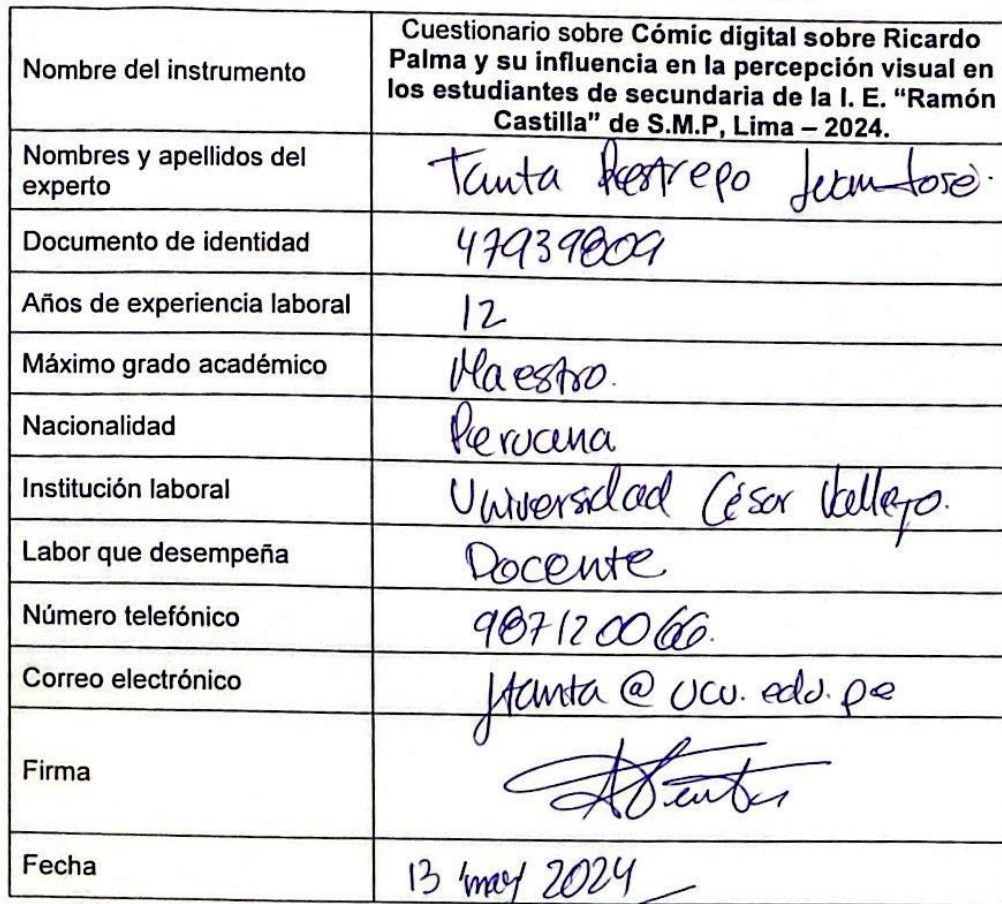 Nombre del instrumento
Cuestionario sobre Cómic digital sobre Ricardo
Palma y su influencia en la percepción visual en
los estudiantes de secundaria de la I. E. “Ramón
Castilla” de S.M.P, Lima – 2024.
Nombres y apellidos del
experto
Tanta Restrepo Juan José.
Documento de identidad
47939809
Años de experiencia laboral
12
Máximo grado académico
Maestro.
Nacionalidad
Peruana
Institución laboral
Universidad César Vallejo.
Labor que desempeña
Docente
Número telefónico
987120066.
Correo electrónico
jtanta@ucv.edu.pe
Firma
Fecha
13 may 2024